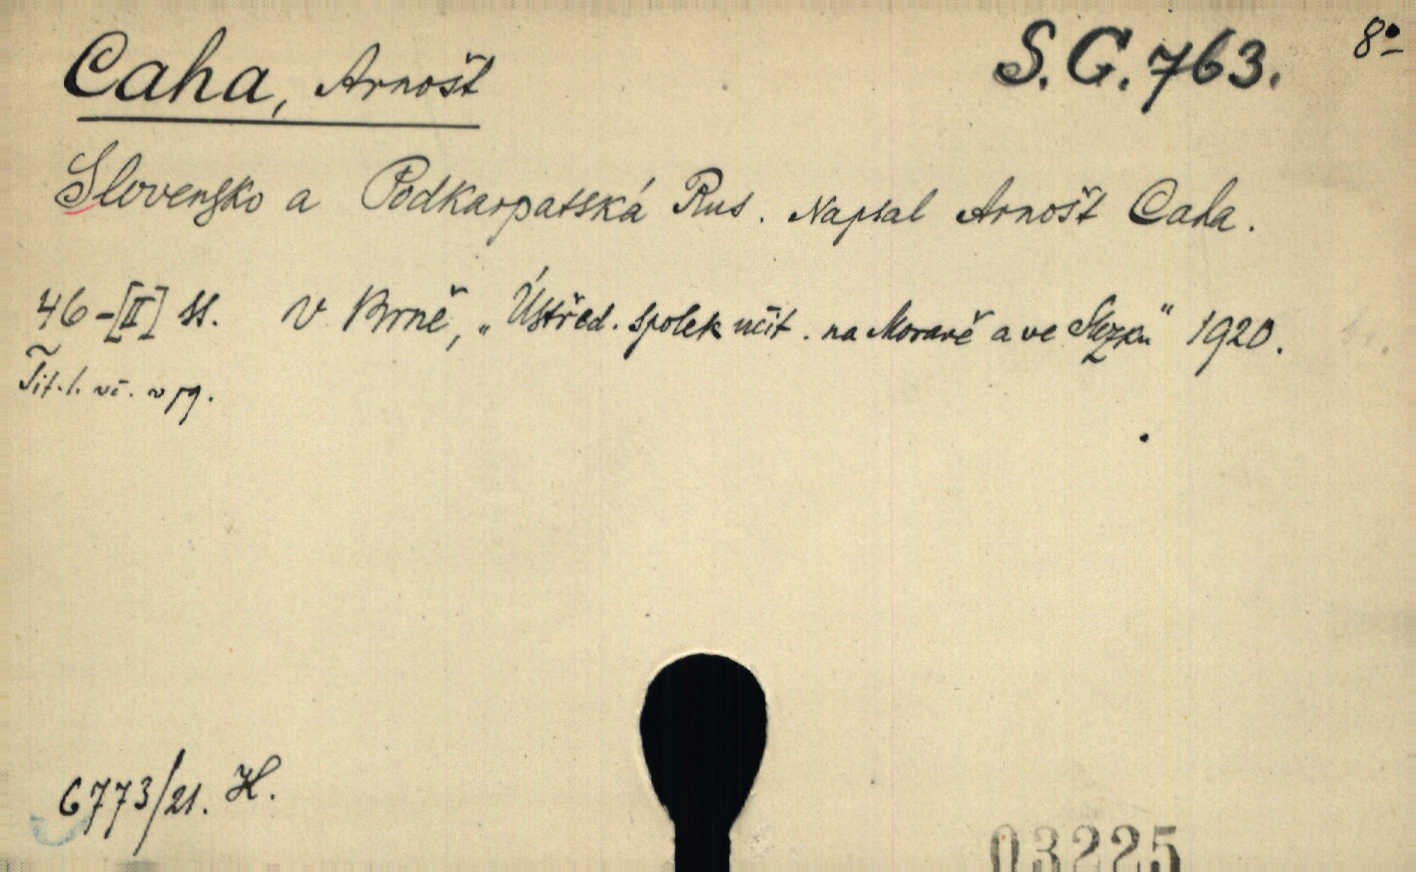 Caha, Arnošt
S.G.763. 8°
Slovensko a Podkarpatská Rus. Napsal Arnošt Caha.
46-[II] ss. V Brně, „Ústřed. spolek učit. na Moravě a ve Slezku" 1920.
Tit. l. vč. v pg.
6773/21. H.
03225